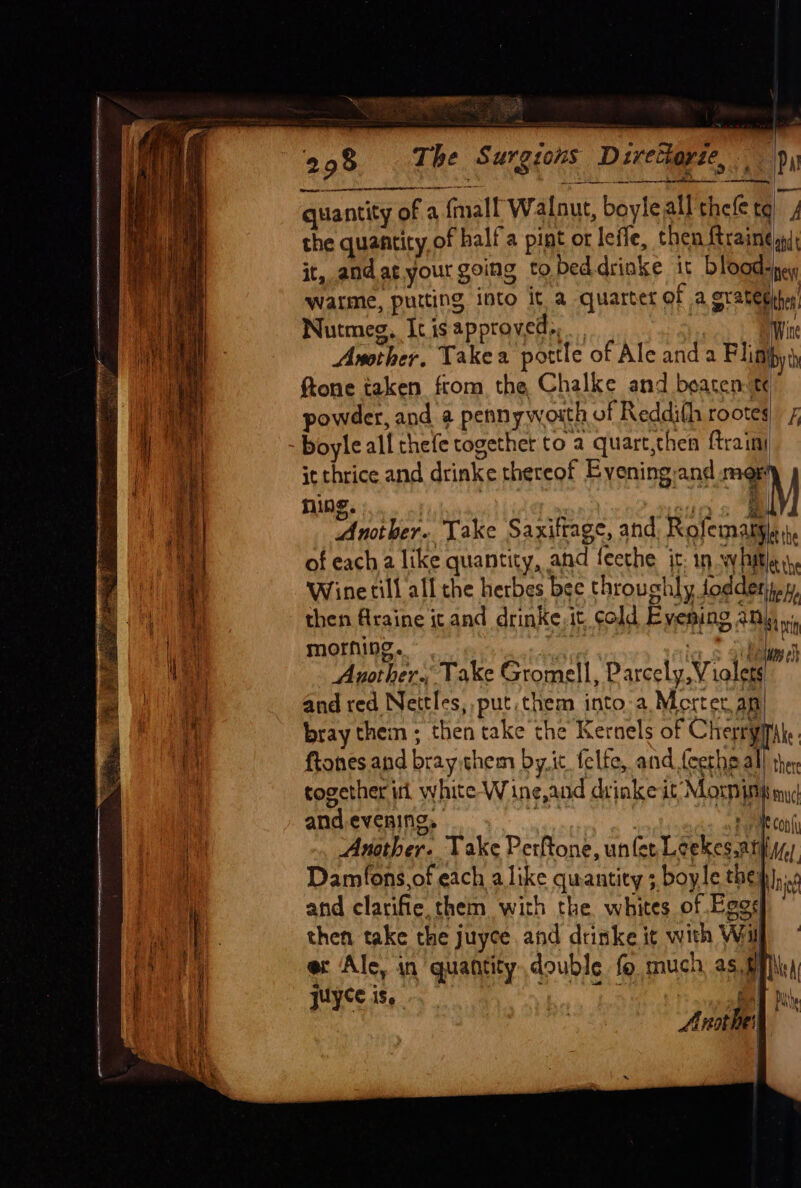 298 The Surgions Directorie,
quantity of a ſmall Walnut, boyle all theſe to
the quantity of half a pint or leſſe, then ſtraine
it, and at your going to bed drinke it blood-
warme, putting into it a quarter of a grated
Nutmeg. It is approved.
Another. Take a pottle of Ale and a Flint
ſtone taken from the Chalke and beaten to
powder, and a pennyworth of Reddiſh rootes
boyle all theſe together to a quart, then ſtrain
it thrice and drinke thereof Evening and mor
ning.
Another. Take Saxifrage, and Roſemary
of each a like quantity, and ſeethe it in white
Wine till all the herbes bee throughly ſodden
then ſtraine it and drinke it cold Evening and
morning.
Another. Take Gromell, Parcely, Violets
and red Nettles, put them into a Morter, an
bray them; then take the Kernels of Cherry
ſtones and bray them by it ſelfe, and ſeethe all
together in white-Wine, and drinke it Morning
and evening.
Another. Take Perſtone, unſet Leekes, an
Damſons, of each a like quantity; boyle the
and clarifie them with the whites of Eggs
then take the juyce and drinke it with Wi
or Ale, in quantity double ſo much as
juyce is.
Another